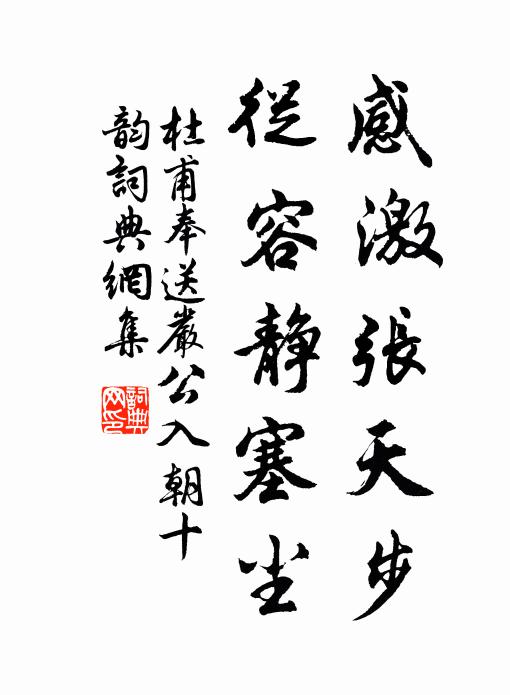 感激張天步
從容靜塞尘
杜甫奉送嚴公入朝十
韵詞典網集
詞典
网印